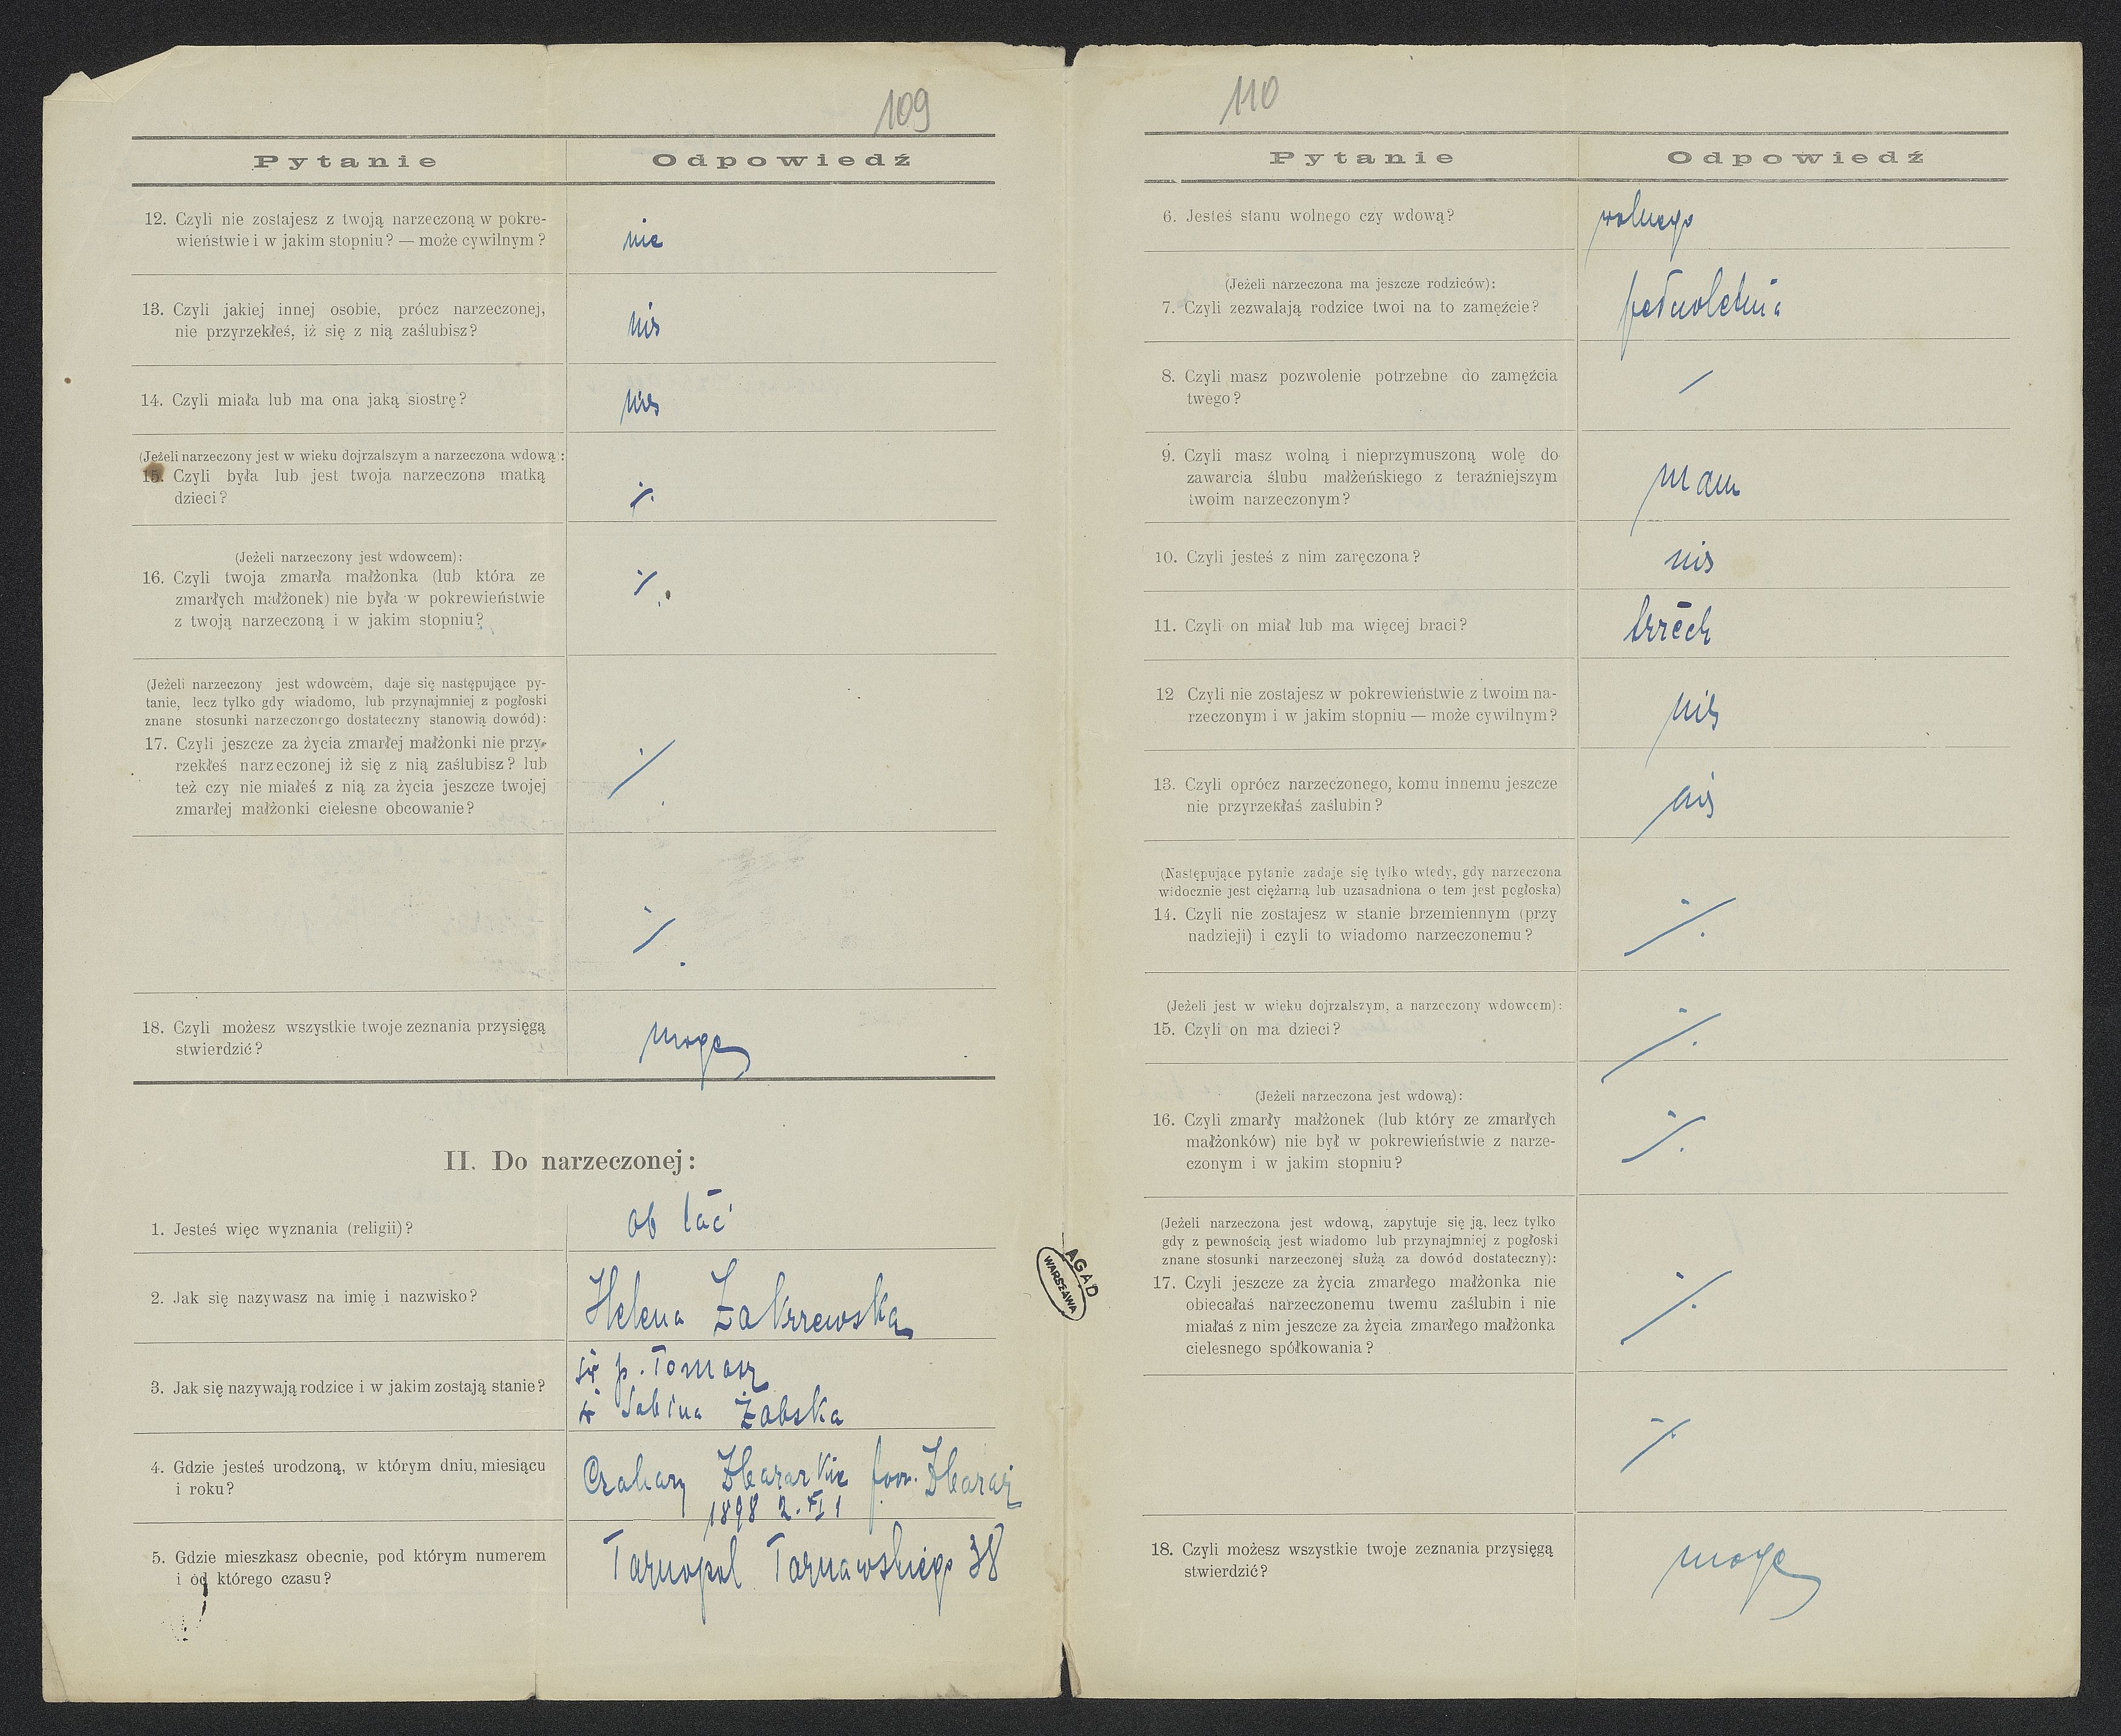 109
Pytanie Odpowiedź
12. Czyli nie zostajesz z twoją narzeczoną w pokre-
wieństwie i w jakim stopniu? — może cywilnym?
nie
13. Czyli jakiej innej osobie, prócz narzeczonej,
nie przyrzekłeś, iż się z nią zaślubisz?
nie
14. Czyli miała lub ma ona jaką siostrę?
nie
(Jeżeli narzeczony jest w wieku dojrzalszym a narzeczona wdową):
15. Czyli była lub jest twoja narzeczona matką
dzieci?
(Jeżeli narzeczony jest wdowcem):
16. Czyli twoja zmarła małżonka (lub która ze
zmarłych małżonek) nie była w pokrewieństwie
z twoją narzeczoną i w jakim stopniu?
(Jeżeli narzeczony jest wdowcem, daje się następujące py-
tanie, lecz tylko gdy wiadomo, lub przynajmniej z pogłoski
znane stosunki narzeczonego dostateczny stanowią dowód):
17. Czyli jeszcze za życia zmarłej małżonki nie przy-
rzekłeś narzeczonej iż się z nią zaślubisz? lub
też czy nie miałeś z nią za życia jeszcze twojej
zmarłej małżonki cielesne obcowanie?
18. Czyli możesz wszystkie twoje zeznania przysięgą
stwierdzić?
mogę
II. Do narzeczonej:
1. Jesteś więc wyznania (religii)?
ob łać
2. Jak się nazywasz na imię i nazwisko?
Helena Zakrzewska
3. Jak się nazywają rodzice i w jakim zostają stanie?
ś p. Tomasz
i Sabina Żabska
4. Gdzie jesteś urodzoną, w którym dniu, miesiącu
i roku?
Czahary Zbaraskie pow. Zbaraż
1898 2.
5. Gdzie mieszkasz obecnie, pod którym numerem
i od którego czasu?
Tarnopol Tarnawskiego 38
AGAD
WARSZAWA
110
Pytanie Odpowiedź
6. Jesteś stanu wolnego czy wdową?
wolnego
(Jeżeli narzeczona ma jeszcze rodziców):
7. Czyli zezwalają rodzice twoi na to zamęźcie?
pełnoletnia
8. Czyli masz pozwolenie potrzebne do zamęźcia
twego?
9. Czyli masz wolną i nieprzymuszoną wolę do
zawarcia ślubu małżeńskiego z teraźniejszym
twoim narzeczonym?
mam
10. Czyli jesteś z nim zaręczona?
nie
11. Czyli on miał lub ma więcej braci?
trzech
12 Czyli nie zostajesz w pokrewieństwie z twoim na-
rzeczonym i w jakim stopniu — może cywilnym?
nie
13. Czyli oprócz narzeczonego, komu innemu jeszcze
nie przyrzekłaś zaślubin?
nie
(Następujące pytanie zadaje się tylko wtedy, gdy narzeczona
widocznie jest ciężarną lub uzasadniona o tem jest pogłoska)
14. Czyli nie zostajesz w stanie brzemiennym (przy
nadzieji) i czyli to wiadomo narzeczonemu?
(Jeżeli jest w wieku dojrzalszym, a narzeczony wdowcem):
15. Czyli on ma dzieci?
(Jeżeli narzeczona jest wdową):
16. Czyli zmarły małżonek (lub który ze zmarłych
małżonków) nie był w pokrewieństwie z narze-
czonym i w jakim stopniu?
(Jeżeli narzeczona jest wdową, zapytuje się ją, lecz tylko
gdy z pewnością jest wiadomo lub przynajmniej z pogłoski
znane stosunki narzeczonej służą za dowód dostateczny):
17. Czyli jeszcze za życia zmarłego małżonka nie
obiecałaś narzeczonemu twemu zaślubin i nie
miałaś z nim jeszcze za życia zmarłego małżonka
cielesnego spółkowania?
18. Czyli możesz wszystkie twoje zeznania przysięgą
stwierdzić?
mogę